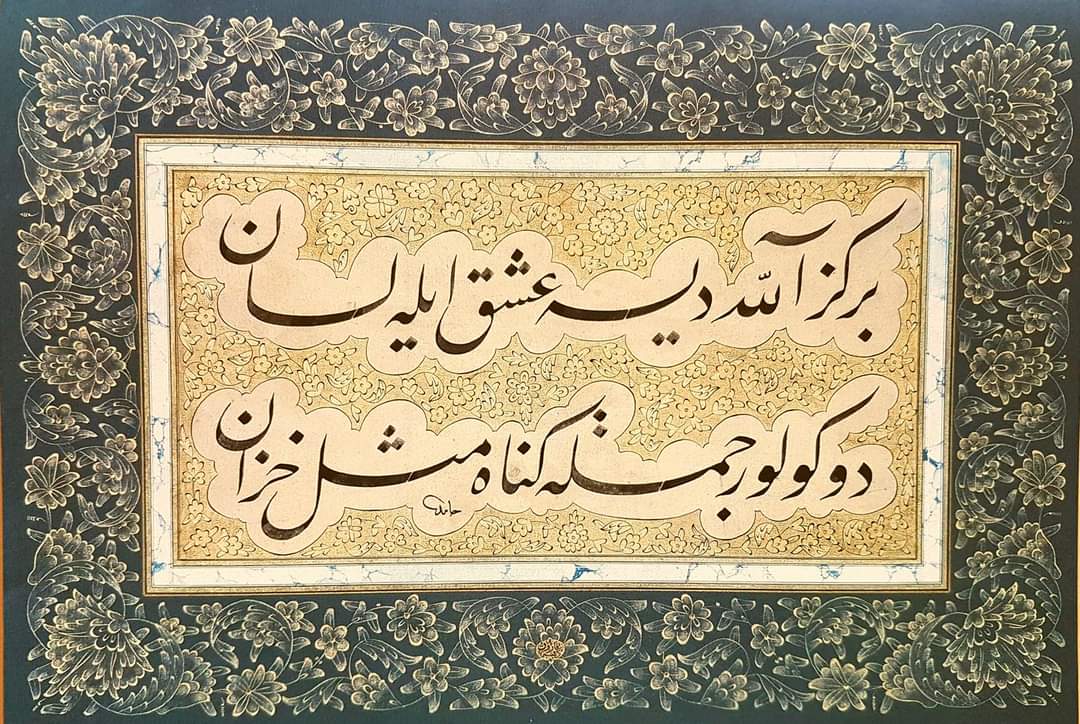 بر كز آللّه ديسه عشق ايله لسان
دوكولور جمله كناه مثل خزان
حامد